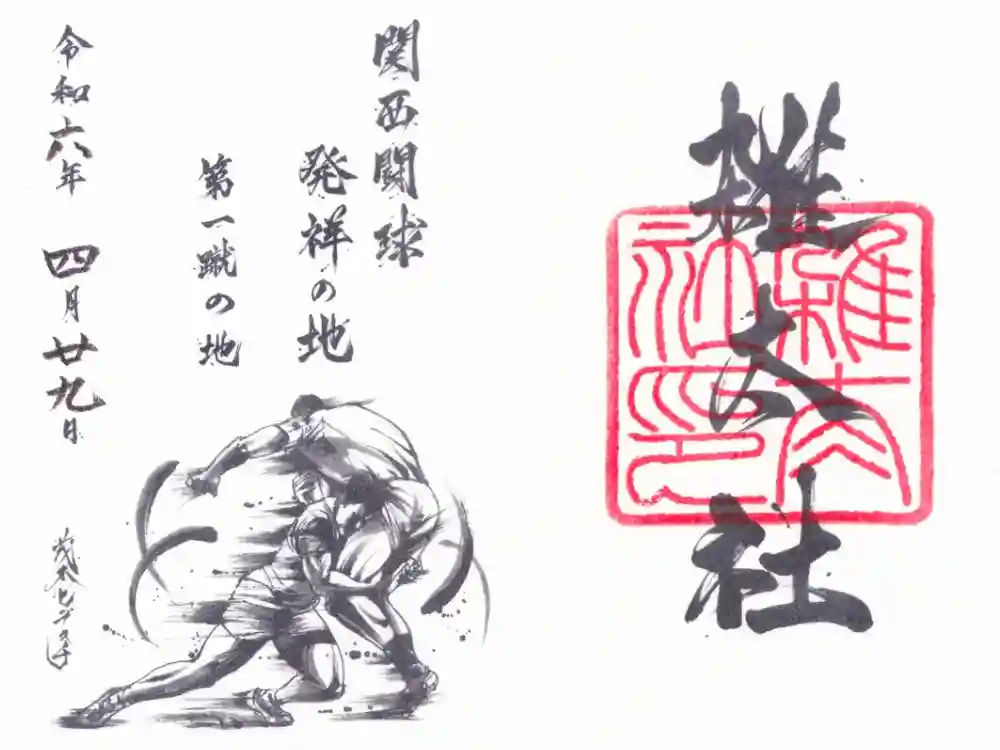 雑太社
雜太社印
関西闘球
発祥の地
第一蹴の地
令和六年 四月廿九日
茂本ヒデキチ